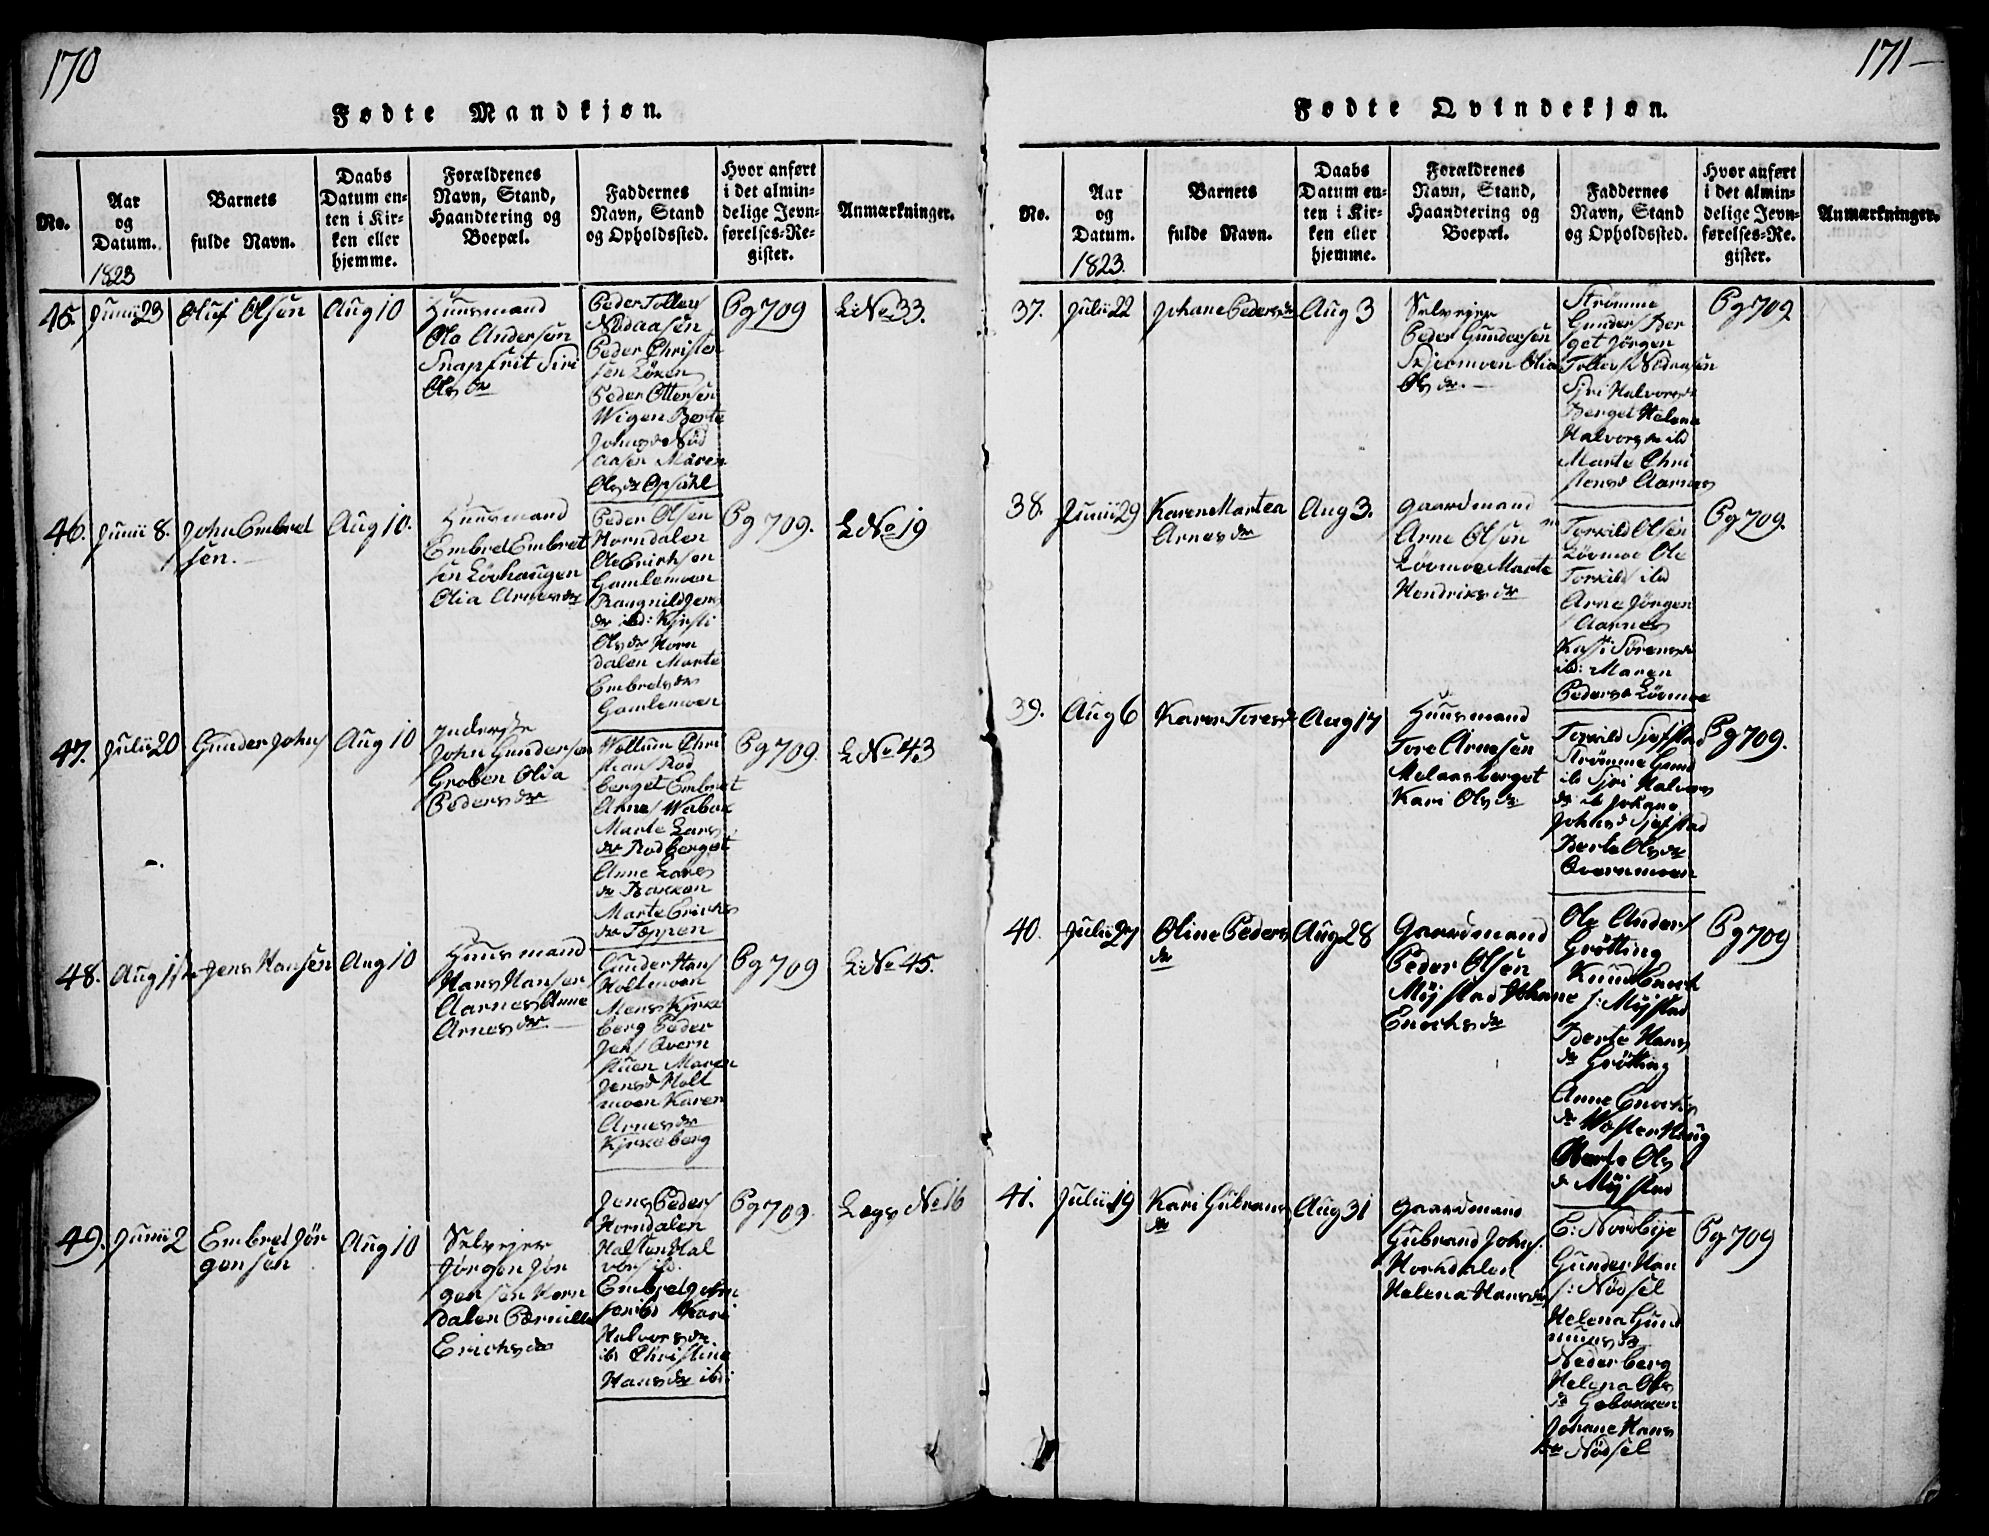 170
Fødte Mandkjøn.
No.
Aar
og
Datum.
1823
Barnets
fulde Navn.
Daabs
Datum en-
ten i Kir-
ken eller
hjemme.
Forældrenes
Navn, Stand,
Haandtering og
Boepæl.
Faddernes
Navn, Stand
og Opholdssted.
Hvor anført
i det almin-
delige Jevn-
førelses-Re-
gister.
Anmærkninger.
45.
Junii 23
Oluf Olsen
Aug 10
Huusmand
Ole Andersen
Snapfrit Siri
Olsdr
Peder Tollers
Nödaasen
Peder Christen
sen Löken
Peder Ottersen
Wigen Berte
Johnsdr Nöd
aasen Maren
Olsdr Opsahl
Pg 709
L No 33.
46.
Junii 8.
John Embret
sen.
Aug 10.
Huusmand
Embret Embret
sen Lövhaugen
Olia Arnesdr
Peder Olsen
Horndalen
Ole Erichsen
Gamlemoen
Raagnild Jens
dr ibd: Kjrsti
Olsdr Horn
dalen Marte
Embretsdr
Gamlemoen
Pg 709.
L No 19
47.
Julii 20
Gunder Johns
Aug 10
Inderste
John Gundersen
Groben Olia
Pedersdr
Chri
stians Rod
berget Embret
Arnes
Marte Lars
dr Rodberget
Anne Lars
dr Bakken
Marte Erichs
dr Toppen
Pg 709.
L No 43
48.
Aug 1ste
Jens Hansen
Aug 10
Huusmand
Hans Hansen
Aarnes Anne
Arnesdr
Gunder Hans
Holtmoen
Mens Kjrke
berg Peder
Jens Qvern
stuen Maren
Jensdr Holt
moen Karen
Arnesdr
Kjrkeberg
Pg 709
L: No 45.
49.
Junii 2
Embret Jör
gensen
Aug 10
Selvejer
Jörgen Jör
gensen Horn
dalen Pernille
Erichsdr
Jens Peders
Horndalen
Halsten Hal
vors ibd.
Embret
Kari
Halvorsdr
ib Christine
Hansdr ibdi
Pg 709.
Legs No 16
171
Fødte Qvindekjøn.
No.
Aar
og
Datum.
1823.
Barnets
fulde Navn.
Daabs
Datum en-
ten i Kir-
ken eller
hjemme.
Forældrenes
Navn, Stand,
Haandtering og
Boepæl.
Faddernes
Navn, Stand
og Opholdssted.
Hvor anført
i det almin-
delige Jevn-
førelses-Re.
gister.
Anmærkninger.
37.
Julii 22
Johane Pedersdr
Aug 3
Selvejer
Peder Gundersen
Skjermoen Olia
Olsdr.
Strömme
Gunders Ber
get Jörgen
Tollers Nödaasen
Sjri Halvorsdr
Berget Helene
Halvorsdr ibd
Marte Chri
stensd Aarnes
Pg 709
38.
Junii 29
Karen Martea
Arnesdr
Aug 3.
Gaardmand
Arne Olsen
Lövmoe Marte
Hendriksdr
Torkild Olsen
Lövmoe Ole
Torkilds ibd
Arne Jörgen
s Aarnes
Kasti Sörensdr
ib: Maren
Pedersdr Lövmoe
Pg 709.
39.
Aug 6
Karen Toresdr
Aug 17
Huusmand
Tore Arnesen
Melaasberget
Kari Olsdr.
Torkild Sjefstad
Strömme Gund
ib Sjri Halvors
dr ib Johane
Johnsd Sjefstad
Berte Olsdr
Qvernmoen
Pg 709.
40.
Julii 27
Oline Peders
dr
Aug 28
Gaardmand
Peder Olsen
Möjstad Johane
Enochsdr
Ole Anders
Grötting
Knud Enoch
s: Möjstad
Berte Hans
dr Grötting
Anne Enochs
dr Wosterhaug
Marte Ols
d Möjstad
Pg 709
41.
Julii 19
Kari Gubrans
dr
Aug 31
Gaardmand
Gubrand Johns.
Horndalen
Helena Hansdr
E: Nordbye
Gunder Han
s: Nödsel
Helena Gund
mundsdr
Nederberg
Helena Ols
dr Gobakken
Johane Hans
dr Nödsel
Pg 709